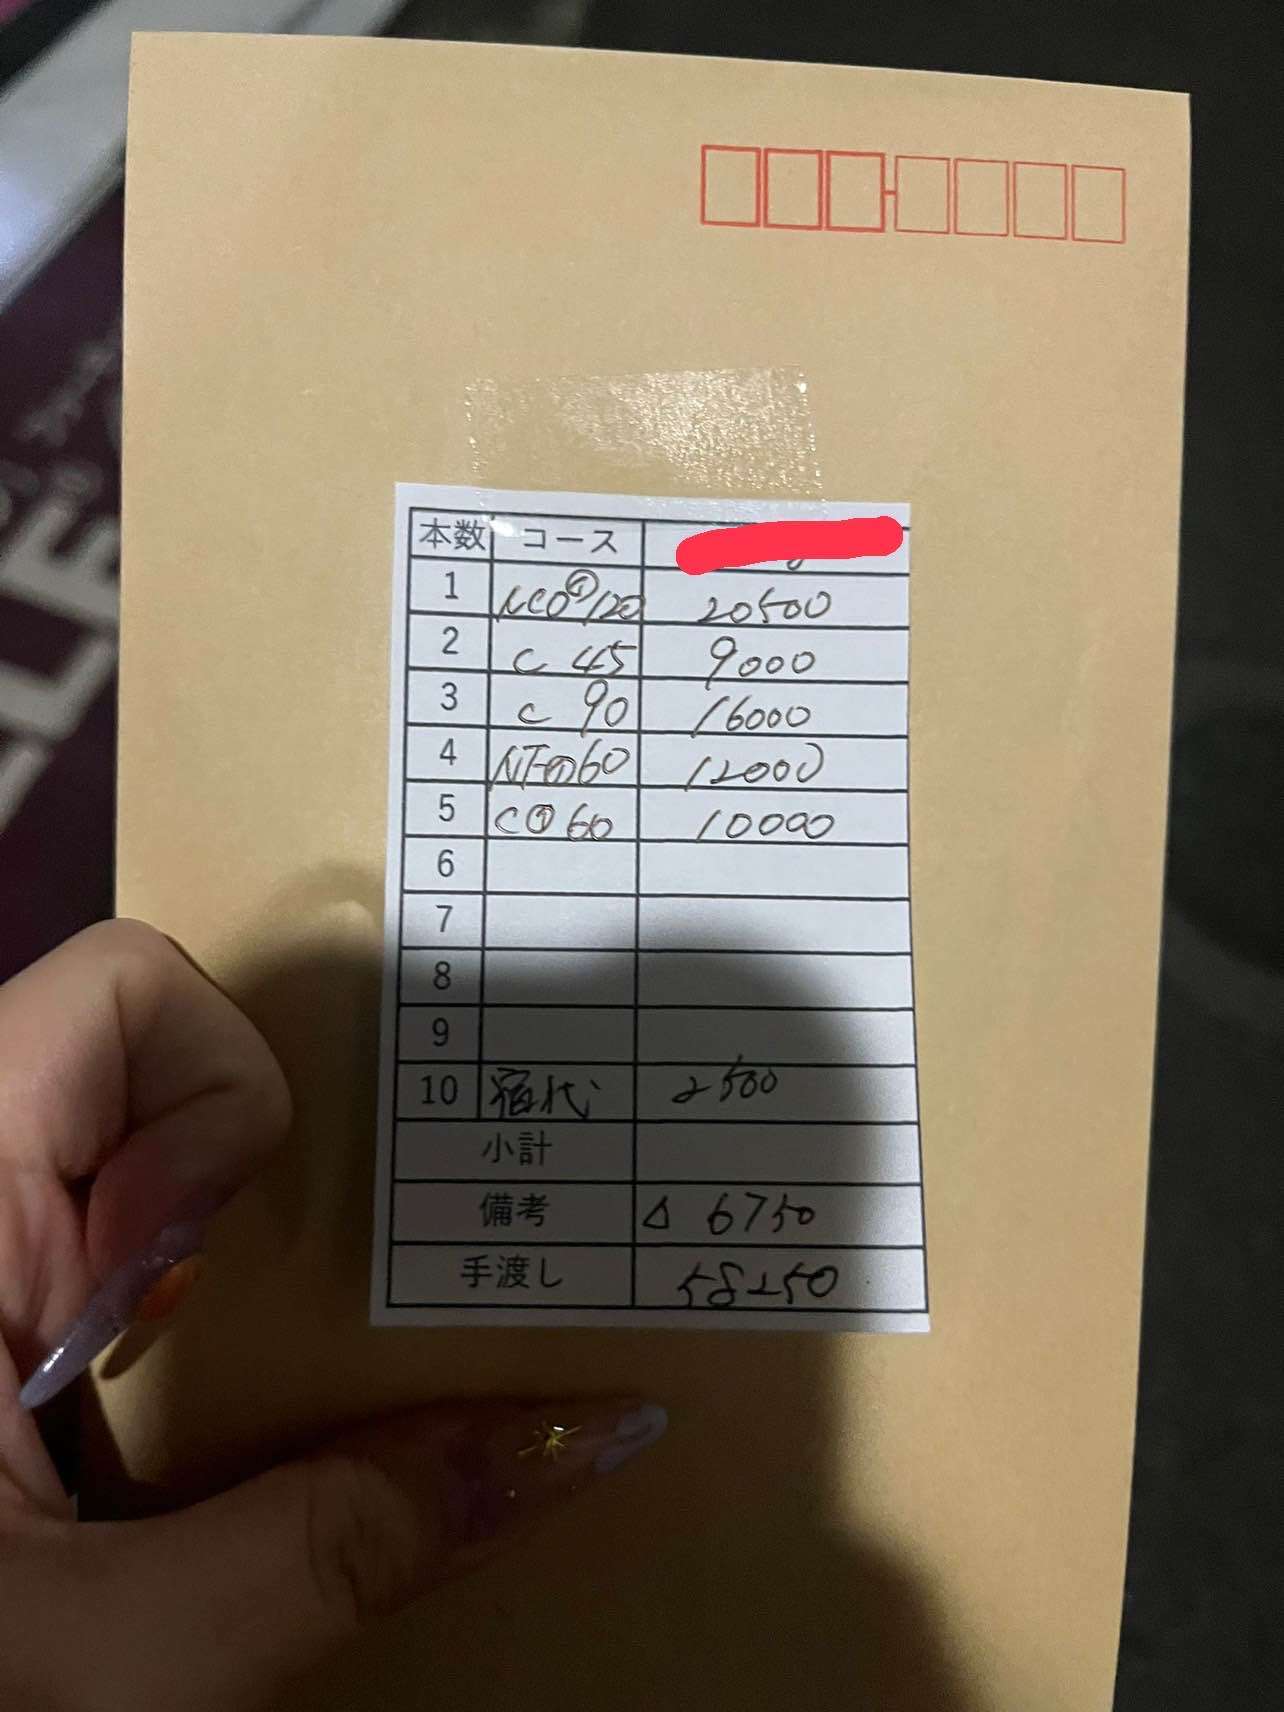 本数 コース
1 NCO①/120 20500
2 C 45 9000
3 C 90 16000
4 NF①60 12000
5 C① 60 10000
6
7
8
9
10 宿代 2500
小計
備考 △ 6750
手渡し 58250